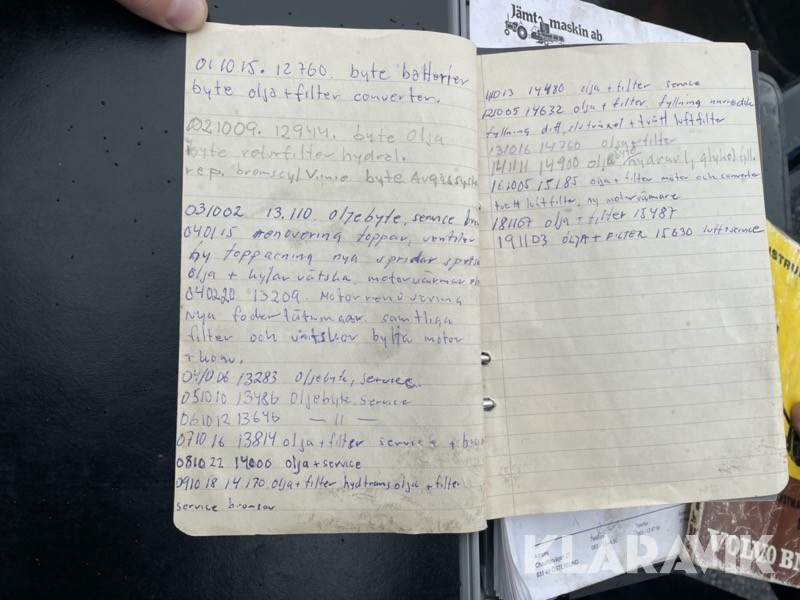 Jämtmaskin ab
011015. 12760. byte batterier
byte olja + filter converter.
021009. 12944. byte olja
byte returfilter hydral.
rep. bromscyl V. inre. byte Avgassyste
031002 13.110. oljebyte, service bro
040115 renovering toppar, ventiler
ny toppacning nya spridar spets
olja + kylar vätska. motorvärmar
040220 13209. Motorrenovering
nya foder tätningar samtliga
filter och vätskor bytta motor
+ konv.
041006 13283 oljebyte, service.
051010 13486 Oljebyte service
061012 13646 — 11 —
071016 13814 olja + filter service +
081022 14000 olja + service
091018 14.170 olja + filter hydtransolja + filter
service bromsar
111013 14480 olja + filter service
121005 14632 olja + filter fyllning
fyllning diff, slutväxel + tvätt luftfilter
131016 14760 olja + filter
141111 14900 olja byte hydraul, glykol fyll.
161005 15185 olja + filter motor och converter
tvätt luftfilter, ny motorvärmare
181107 olja + filter 15487
191103 OLJA + FILTER 15630 luft + service
INSTRUK
VOLVO BM
Adress
KLARAVIK